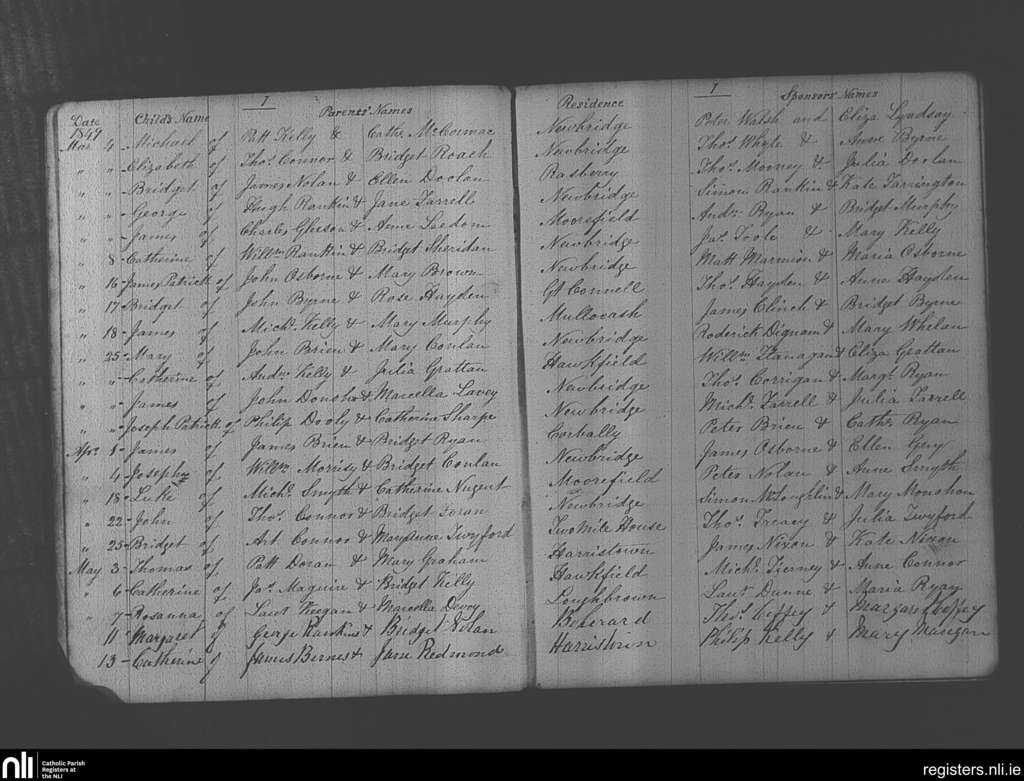 7 7
Date Child's Name Parents' Names Residence Sponsors' Names
1849
Mar. 4 - Michael of Patt Kelly & Cathe. McCormac Newbridge Peter Walsh and Eliza Lyndsay
" " - Elizabeth of Thos. Connor & Bridget Roach Newbridge Thos. Whyte & Anne Byrne
" " - Bridget of James Nolan & Ellen Doolan Rasberry Thos. Mooney & Julia Doolan
" " - George of Hugh Rankin & Jane Farrell Newbridge Simon Rankin & Kate Farrington
" " - James of Charles Gleeson & Anne Leedom Moorefield Andw. Ryan & Bridget Murphy
" 8 - Catherine of Willm. Rankin & Bridget Sheridan Newbridge Jas. Toole & Mary Kelly
" 16 - James Patrick of John Osborne & Mary Brown Newbridge Matt Marmion & Maria Osborne
" 17 - Bridget of John Byrne & Rose Hayden Gt. Connell Thos. Hayden & Anne Hayden
" 18 - James of Michl. Kelly & Mary Murphy Mullovash James Clinch & Bridget Byrne
" 25 - Mary of John Brien & Mary Conlan Newbridge Roderick Dignam & Mary Whelan
" " - Catherine of Andw. Kelly & Julia Grattan Hawkfield Willm. Flanagan & Eliza Grattan
" " - James of John Donoho & Marcella Lavey Newbridge Thos. Corrigan & Margt. Ryan
" " - Joseph Patrick of Philip Dooly & Catherine Sharpe Newbridge Michl. Farrell & Julia Farrell
Apr. 8 - James of James Brien & Bridget Ryan Corbally Peter Brien & Cath. Ryan
" 4 - Joseph of Willm. Morrisy & Bridget Conlan Newbridge James Osborne & Ellen Guy
" 18 - Luke of Michl. Smyth & Catherine Nugent Moorefield Peter Nolan & Anne Smyth
" 22 - John of Thos. Connor & Bridget Foran Newbridge Simon McLoughlin & Mary Monohan
" 25 - Bridget of Art. Connor & Maryanne Twyford Two Mile House Thos. Treacy & Julia Twyford
May 3 - Thomas of Patt Doran & Mary Graham Harristown James Nixon & Kate Nixon
" 6 - Catherine of Jas. Maguire & Bridget Kelly Hawkfield Michl. Tierney & Anne Connor
" 7 - Rosanna of Laut. Keegan & Marcella Devoy Loughbrown Laut. Dunne & Maria Ryan
" 11 - Margaret of George Rankins & Bridget Nolan Thos. Coffey & Margaret Coffey
" 13 - Catherine of James Birnes & Jane Redmond Harristown Philip Kelly & Mary Mangan
nli Catholic Parish
Registers at
the NLI
registers.nli.ie